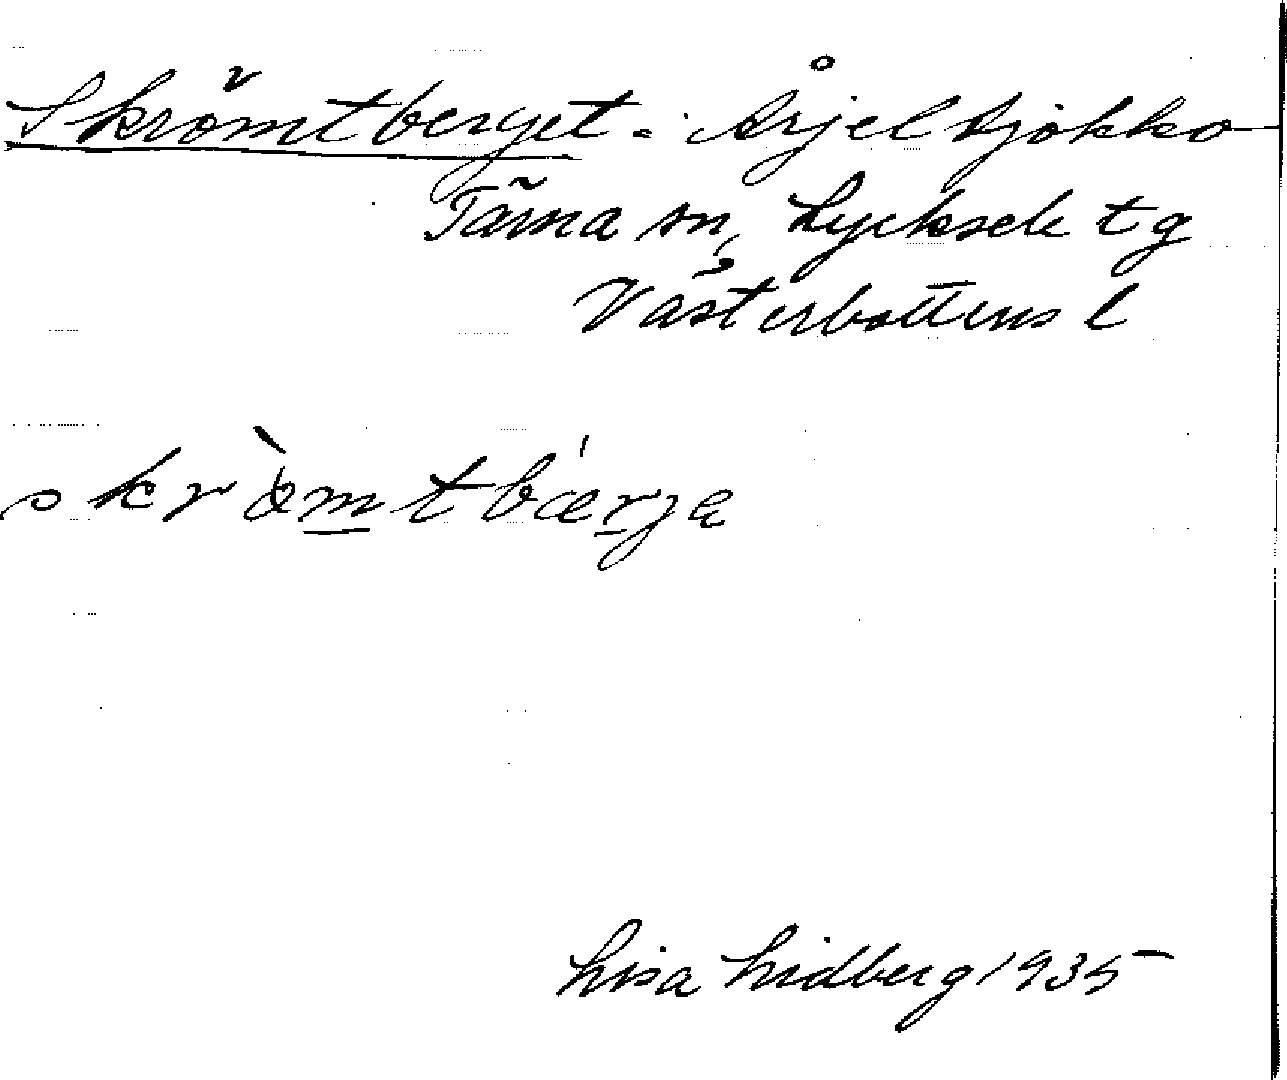 Skrömtberget. Årjel Sjokko
Tärna sn, Lycksele tg
Västerbottens l
skrö̀mtbǽrją
Lisa Lidberg 1935